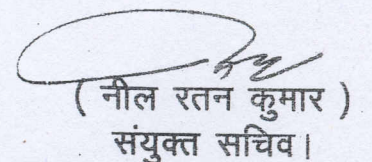 ( नील रतन कुमार )
संयुक्त सचिव।